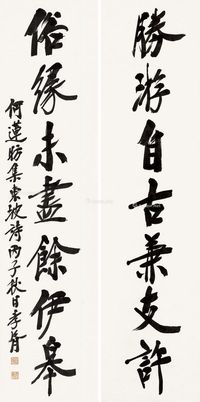 勝游自古兼支許
俗緣未盡餘伊皋
何蓮舫集東坡詩丙子秋日孝胥